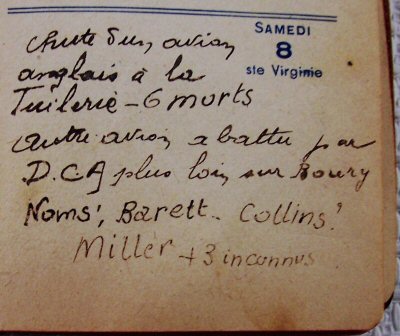 SAMEDI
8
ste Virginie
chute d'un avion
anglais à la
Tuilerie - 6 morts
autre avion abattu par
D.C.A plus loin sur Boury
Noms: Barett - Collins
Miller + 3 inconnus